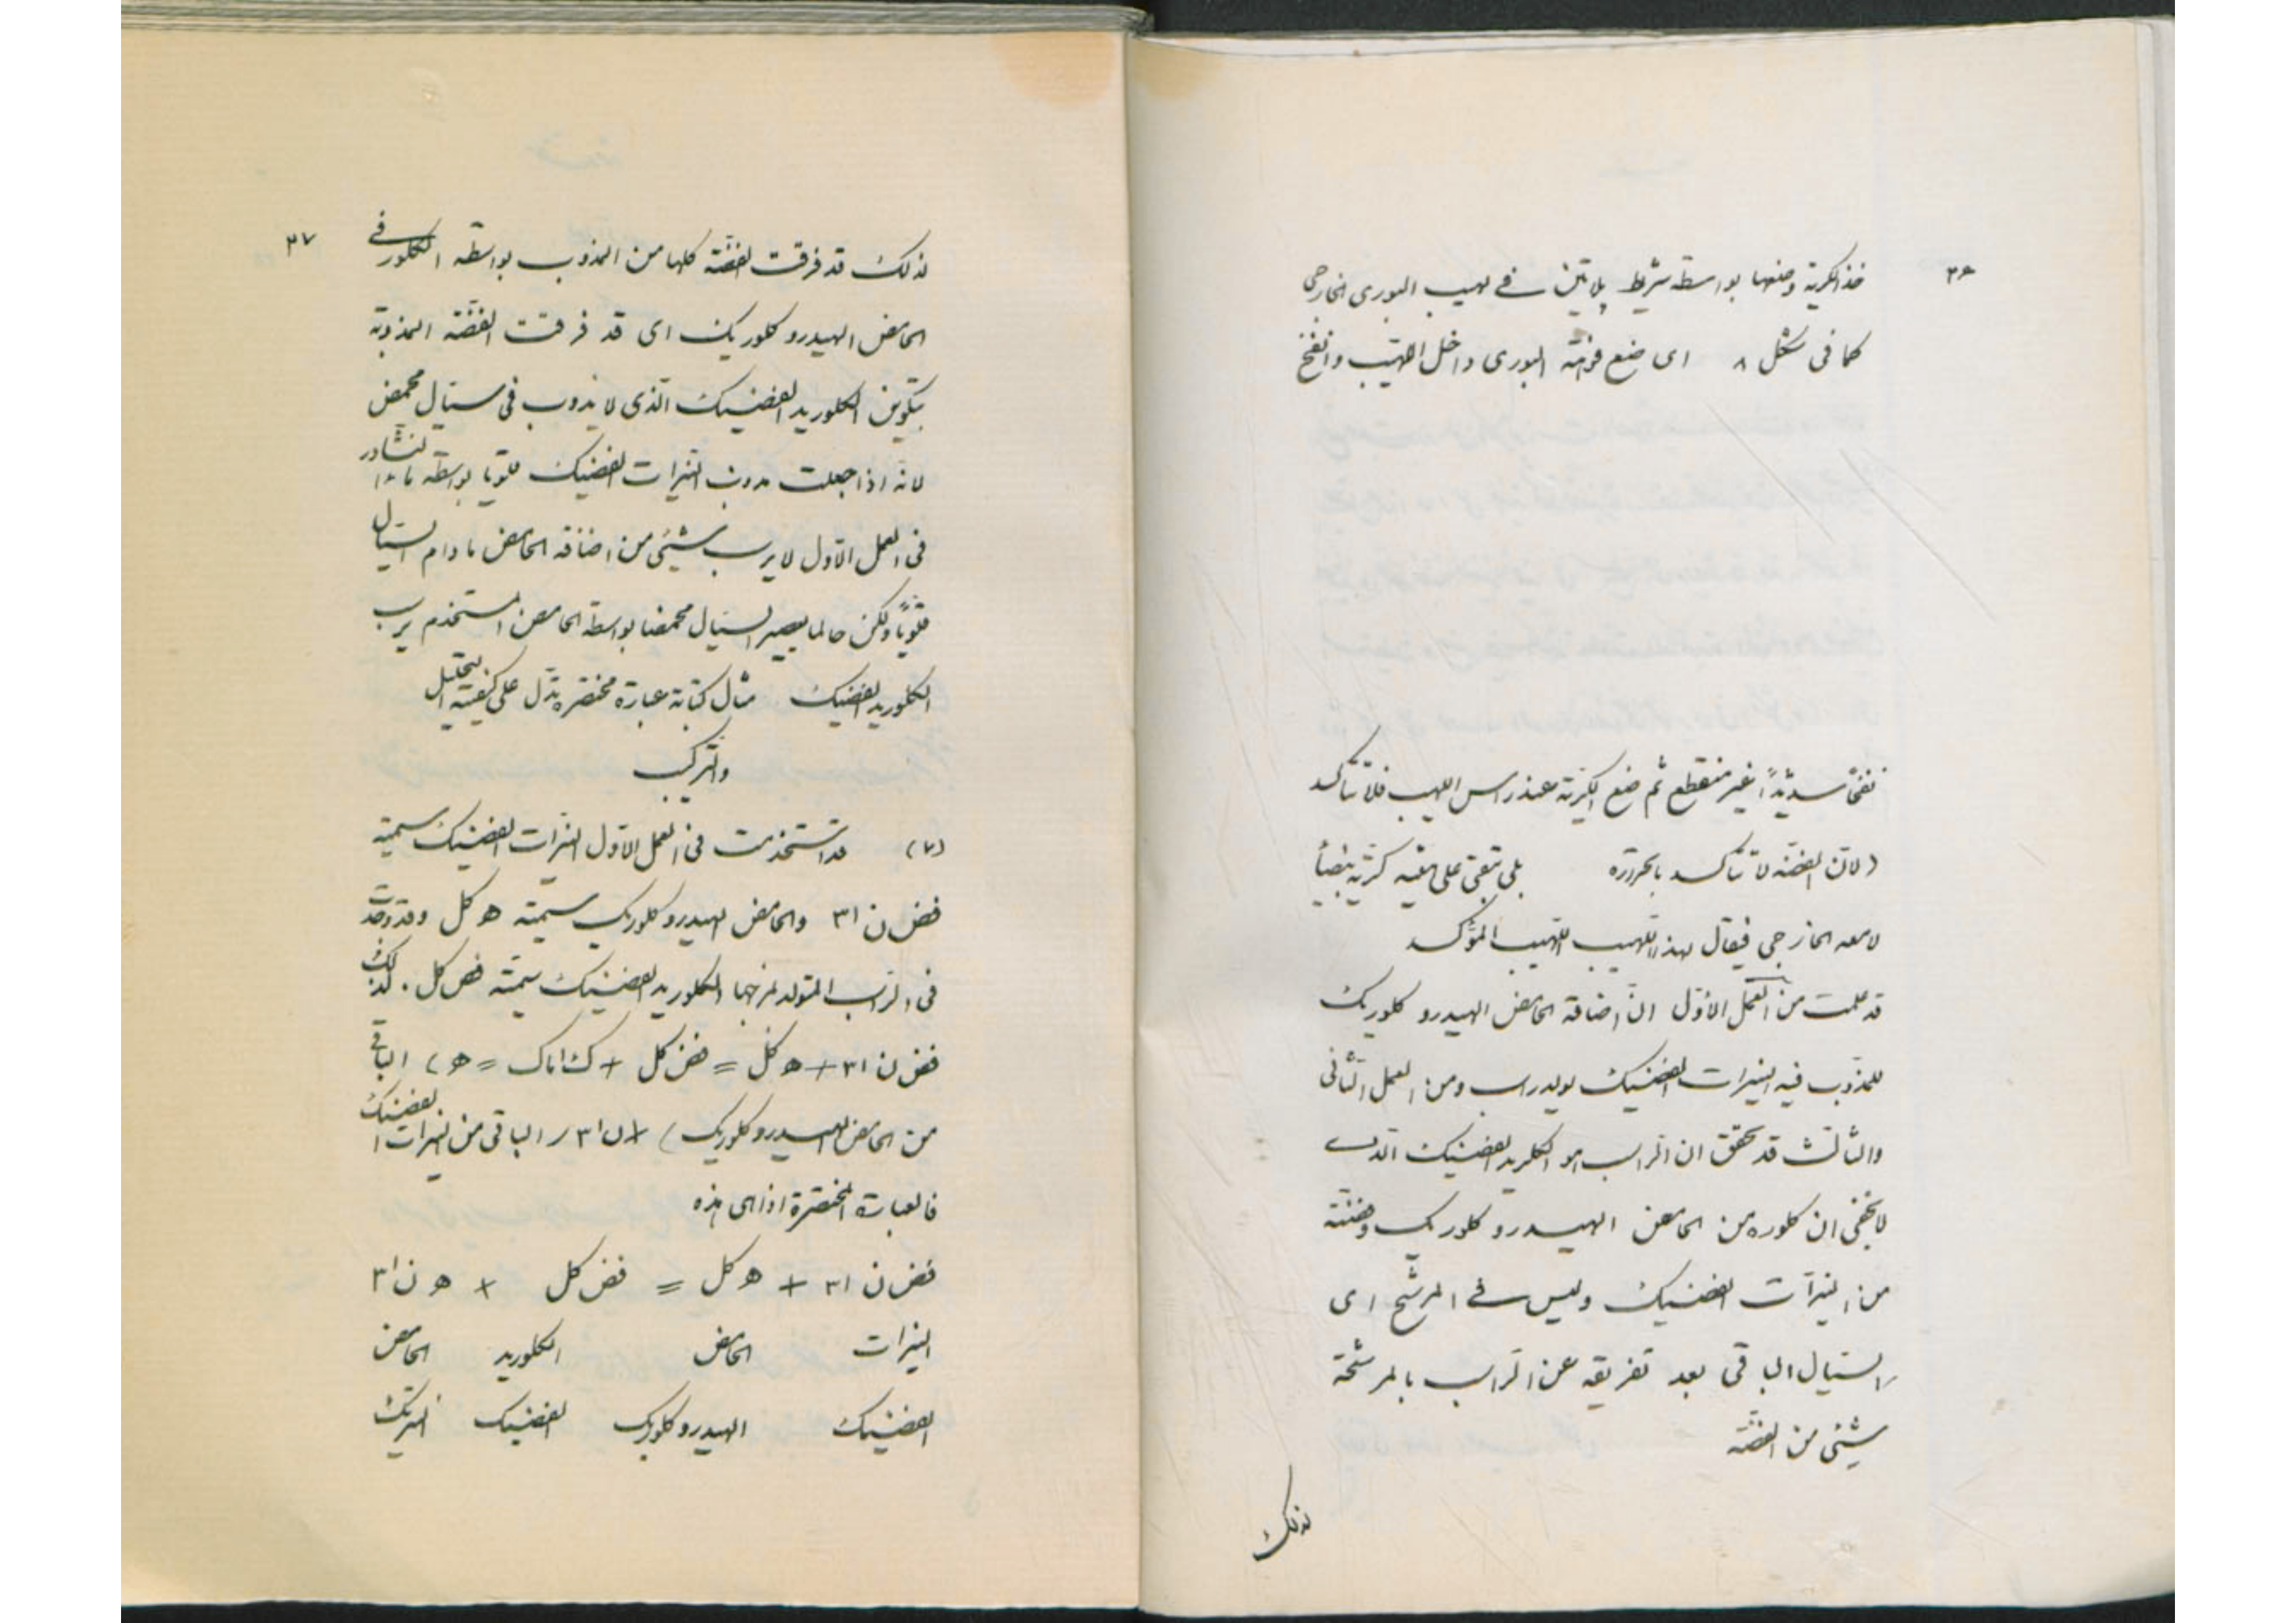 ٣٦
خذ الكرية وضعها بواسطة شريط پلاتين في لهيب البورى الخارجى
كما فى شكل ٨ اى ضع فوهة البورى داخل اللهيب وانفخ
نفخًا سديدًا غير منقطع ثم ضع الكرية عند راس اللهيب فلا تتأكسد
(لان الفضة لا تتأكسد بالحرارة بلى تبقى على هيئة كرية بيضأ
لامعه الخارجى فيقال لهذا اللهيب اللهيب المؤكسد
قد علمت من العمل الأول ان اضافة الحامض الهيدرو كلوريك
للمذوب فيه النيترات الفضيك يولد راسب ومن العمل الثانى
والثالث قد تحقق ان الراسب هو الكلريد الفضيك الذى
لا يخفى ان كلوره من الحامض الهيدرو كلوريك وفضته
من النيترات الفضيك وليس في المرشح اى
السيال الباقى بعد تفريقه عن الراسب بالمرشحة
شيئى من الفضة
لذلك
٣٧
لذلك قد فرقت الفضة كلها من المذوب بواسطه الكلور فى
الحامض الهيدرو كلوريك اى قد فرقت الفضة المذوبة
بتكوين الكلوريد الفضيك الذى لا يذوب فى سيال محمض
لانه اذا جعلت مذوب النيترات الفضيك قلويا بواسطه ماء النشادر
فى العمل الاول لا يرسب شيئى من اضافه الحامض ما دام السيال
قلويًا ولكن حالما يصير السيال محمضا بواسطه الحامض المستخدم يرسب
الكلوريد الفضيك مثال كتابة عبارة مختصره تدل على كيفية التحليل
والتركيب
(٧) قد استخدمت فى العمل الاول النيترات الفضيك سمته
فض ن ا٣ والحامض الهيدرو كلوريك سمته ه كل وقد وجدت
فى الراسب المتولد من مزجهما الكلوريد الفضيك سمته فض كل. لذلك
فض ن ا٣ + ه كل = فض كل + ك اماك = ه) الباقى
من الحامض الهيدرو كلوريك) + ن ا٣ ر الباقى من النيترات الفضيك
فالعبارة المختصرة اذا هى هذه
فض ن ا٣ + ه كل = فض كل + ه ن ا٣
النيترات الحامض الكلوريد الحامض
الفضيك الهيدرو كلوريك الفضيك النيتريك